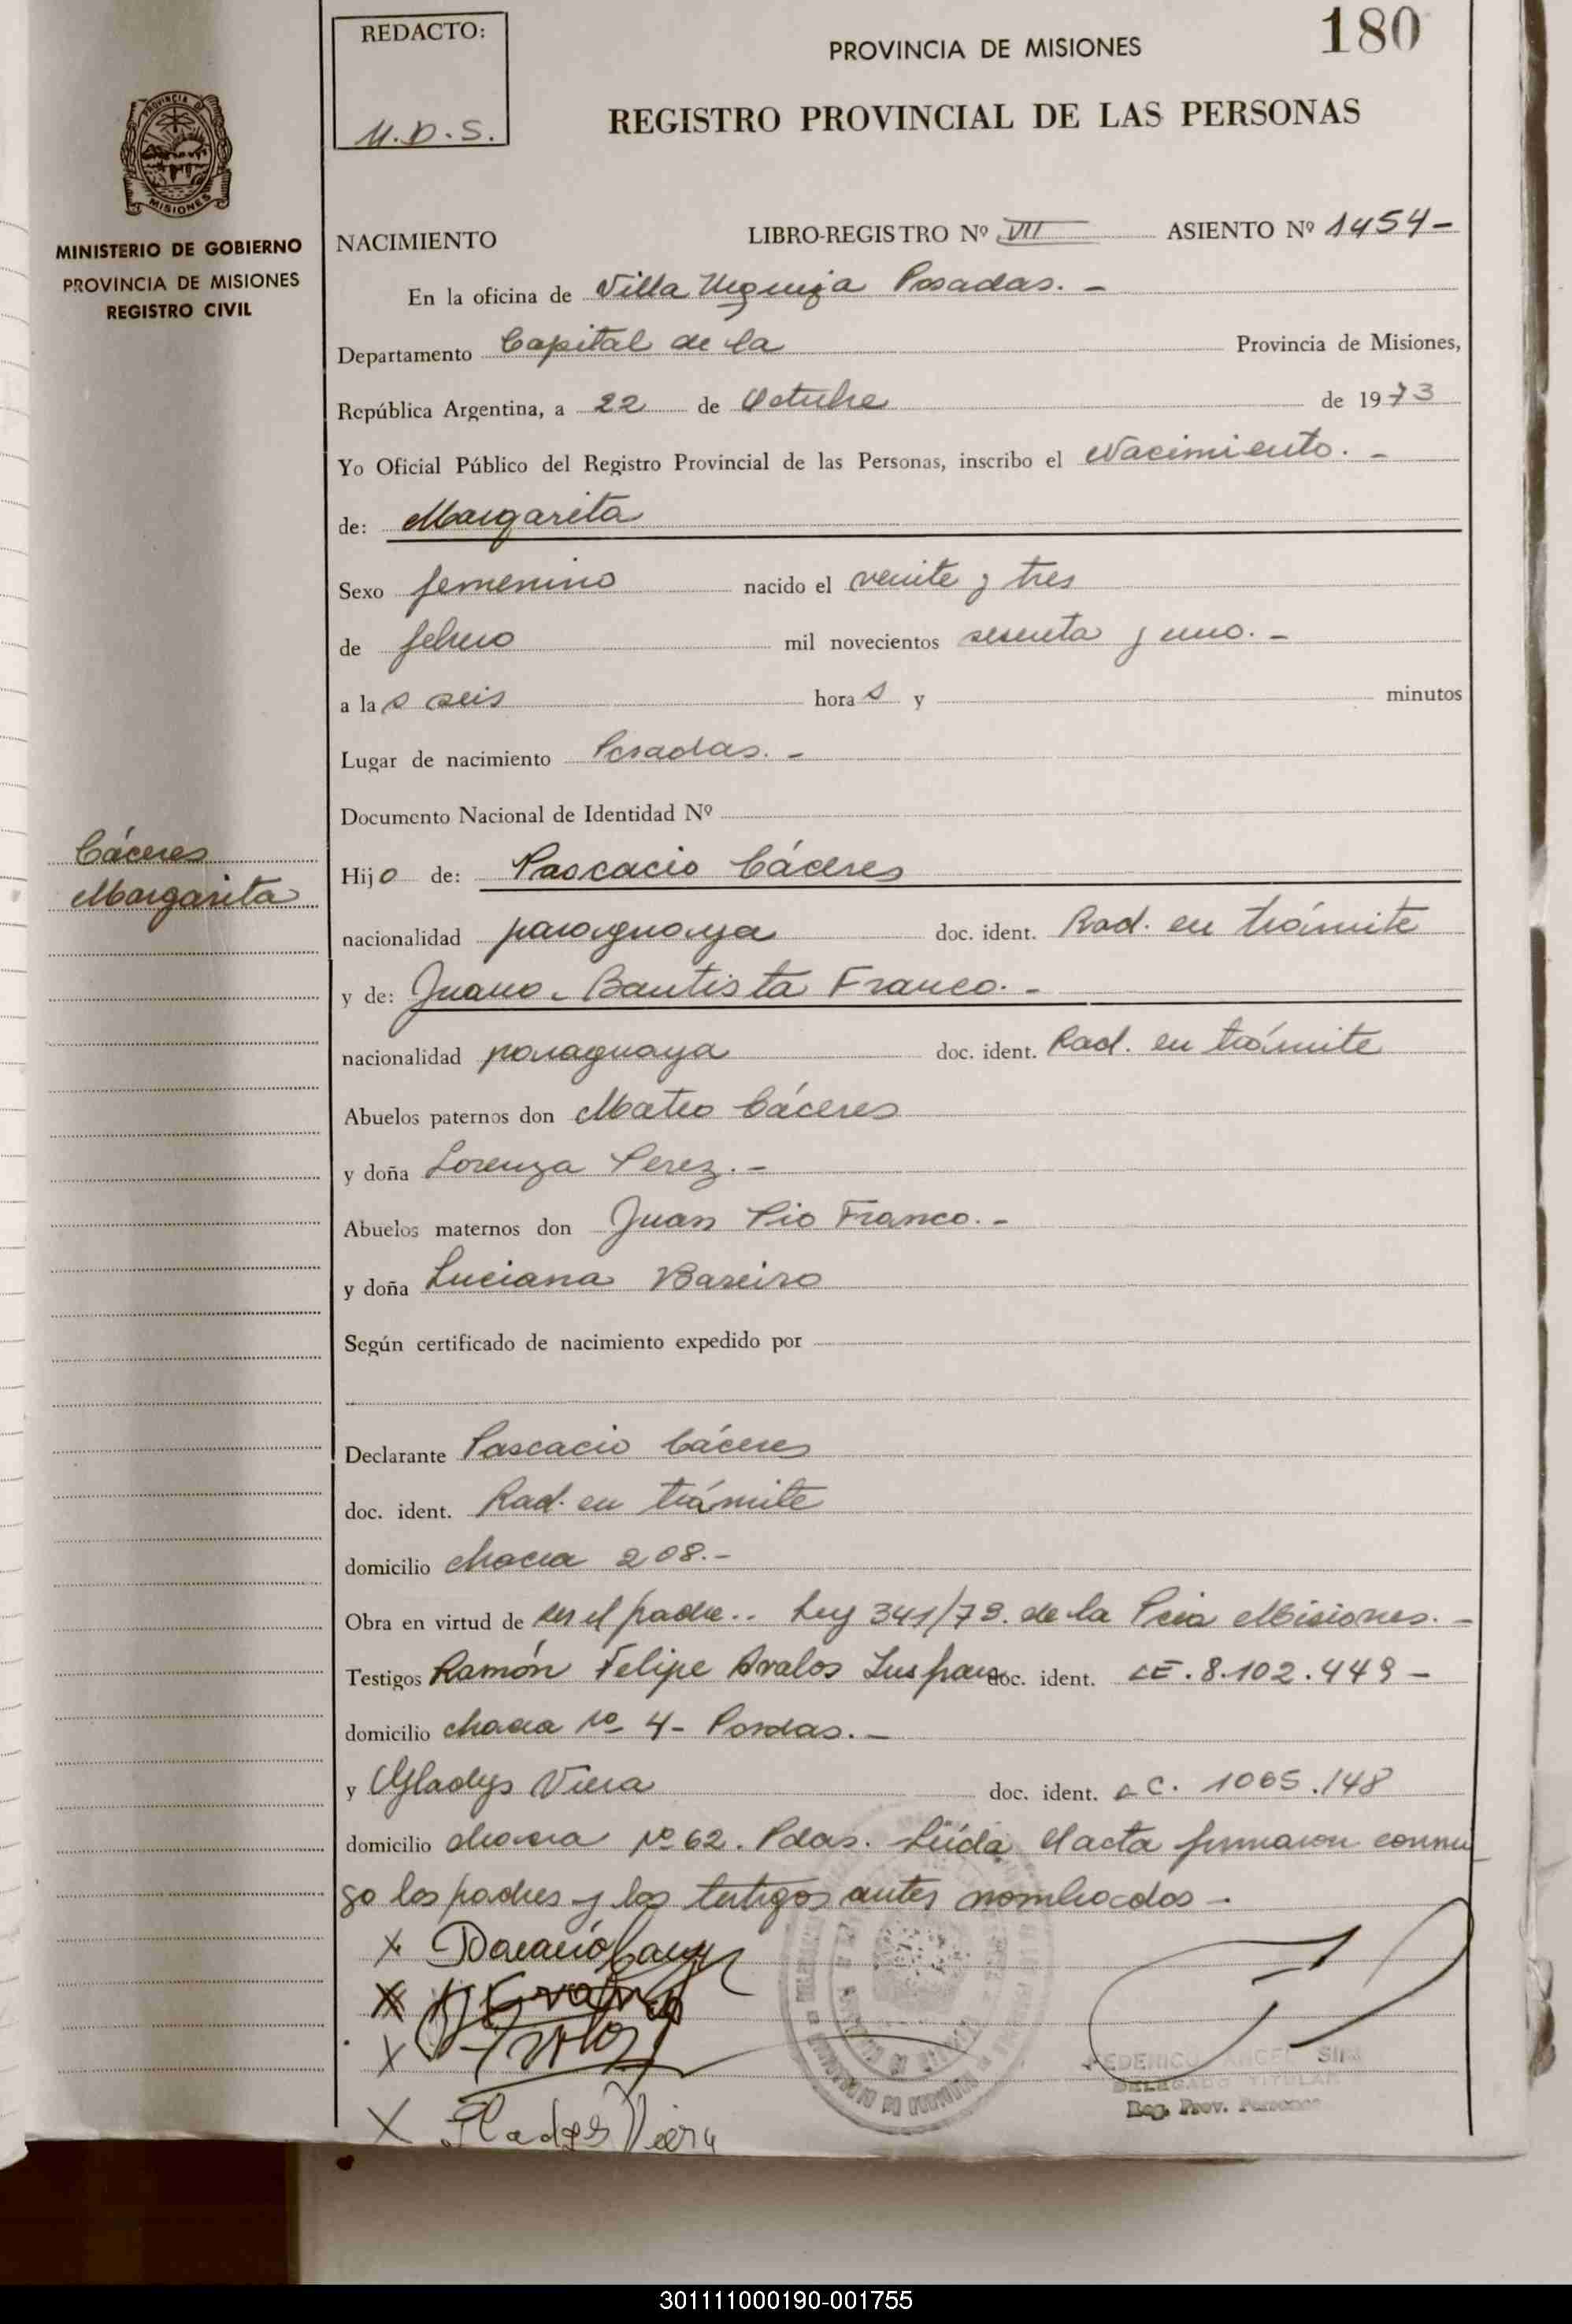 REDACTO:
M.D.S.
180
PROVINCIA DE MISIONES
REGISTRO PROVINCIAL DE LAS PERSONAS
PROVINCIA DE
MISIONES
MINISTERIO DE GOBIERNO
PROVINCIA DE MISIONES
REGISTRO CIVIL
NACIMIENTO LIBRO-REGISTRO Nº VII ASIENTO Nº 1454-
En la oficina de Villa Urquiza Posadas. -
Departamento Capital de la Provincia de Misiones,
República Argentina, a 22 de Octubre de 1973
Yo Oficial Público del Registro Provincial de las Personas, inscribo el Nacimiento. -
de: Margarita
Sexo femenino nacido el veinte y tres
de febrero mil novecientos sesenta y uno. -
a las seis horas y minutos
Lugar de nacimiento Posadas. -
Documento Nacional de Identidad Nº
Cáceres
Margarita
Hijo de: Pascacio Cáceres
nacionalidad paraguaya doc. ident. Rad. en trámite
y de: Juana Bautista Franco. -
nacionalidad paraguaya doc. ident. Rad. en trámite
Abuelos paternos don Mateo Cáceres
y doña Lorenza Perez. -
Abuelos maternos don Juan Pio Franco. -
y doña Luciana Bareiro
Según certificado de nacimiento expedido por
Declarante Pascacio Cáceres
doc. ident. Rad. en trámite
domicilio chacra 208. -
Obra en virtud de ser el padre.. Ley 341/73. de la Pcia Misiones. -
Testigos Ramón Felipe Avalos doc. ident. LE. 8.102.449 -
domicilio chacra Nº 4 - Posdas. -
y Gladys Viera doc. ident. LC. 1065.148
domicilio chacra Nº 62. Pdas. Leída el acta firmaron conmi
go los padres y los testigos antes nombrados -
X
X
X
X Gladys Viera
FEDERICO ANGEL
DELEGADO TITULAR
Reg. Prov. Personas
301111000190-001755